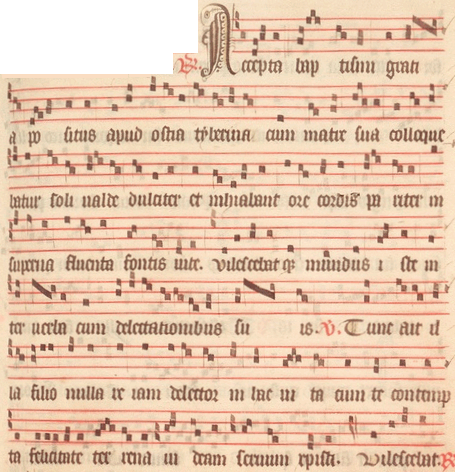 R. Accepta bap tismi grati
a po situs apud ostia tyberina cum matre sua colloque
batur soli valde dulciter et inhiabant ore cordis pa riter in
superna fluenta fontis vite. vilescebat qz mundus i ste in
ter verba cum delectationibus su is. V. Tunc ait il
la filio nulla re iam delector in hac vi ta cum te contemp
ta felicitate ter rena vi deam servum xpisti. Vilescebat. R